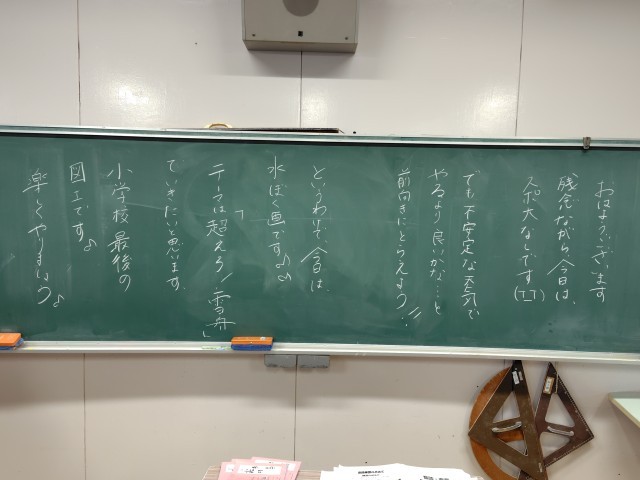 おはようございます
残念ながら今日は、
スポ大なしです
でも不安定な天気で
やるより良いかな…と
前向きにとらえよう!!
というわけで、今日は、
水ぼく画です♪♪
テーマは「超えろ!雪舟」
でいきたいと思います。
小学校最後の
図工です♪
楽しくやりましょう♪